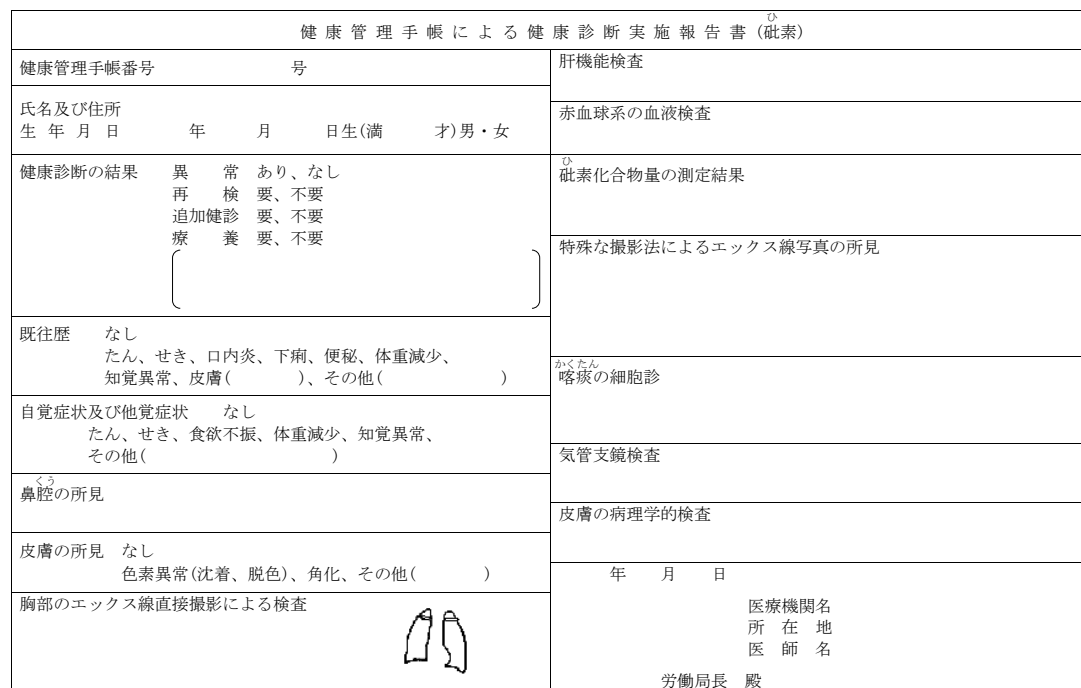 健康管理手帳による健康診断実施報告書(砒素)
ひ
健康管理手帳番号 号
氏名及び住所
生年月日 年 月 日生(満 才)男・女
健康診断の結果 異常 あり、なし
再検 要、不要
追加健診 要、不要
療養 要、不要
既往歴 なし
たん、せき、口内炎、下痢、便秘、体重減少、
知覚異常、皮膚( )、その他( )
自覚症状及び他覚症状 なし
たん、せき、食欲不振、体重減少、知覚異常、
その他( )
くう
鼻腔の所見
皮膚の所見 なし
色素異常(沈着、脱色)、角化、その他( )
胸部のエックス線直接撮影による検査
肝機能検査
赤血球系の血液検査
ひ
砒素化合物量の測定結果
特殊な撮影法によるエックス線写真の所見
かくたん
喀痰の細胞診
気管支鏡検査
皮膚の病理学的検査
年 月 日
医療機関名
所在地
医師名
労働局長 殿